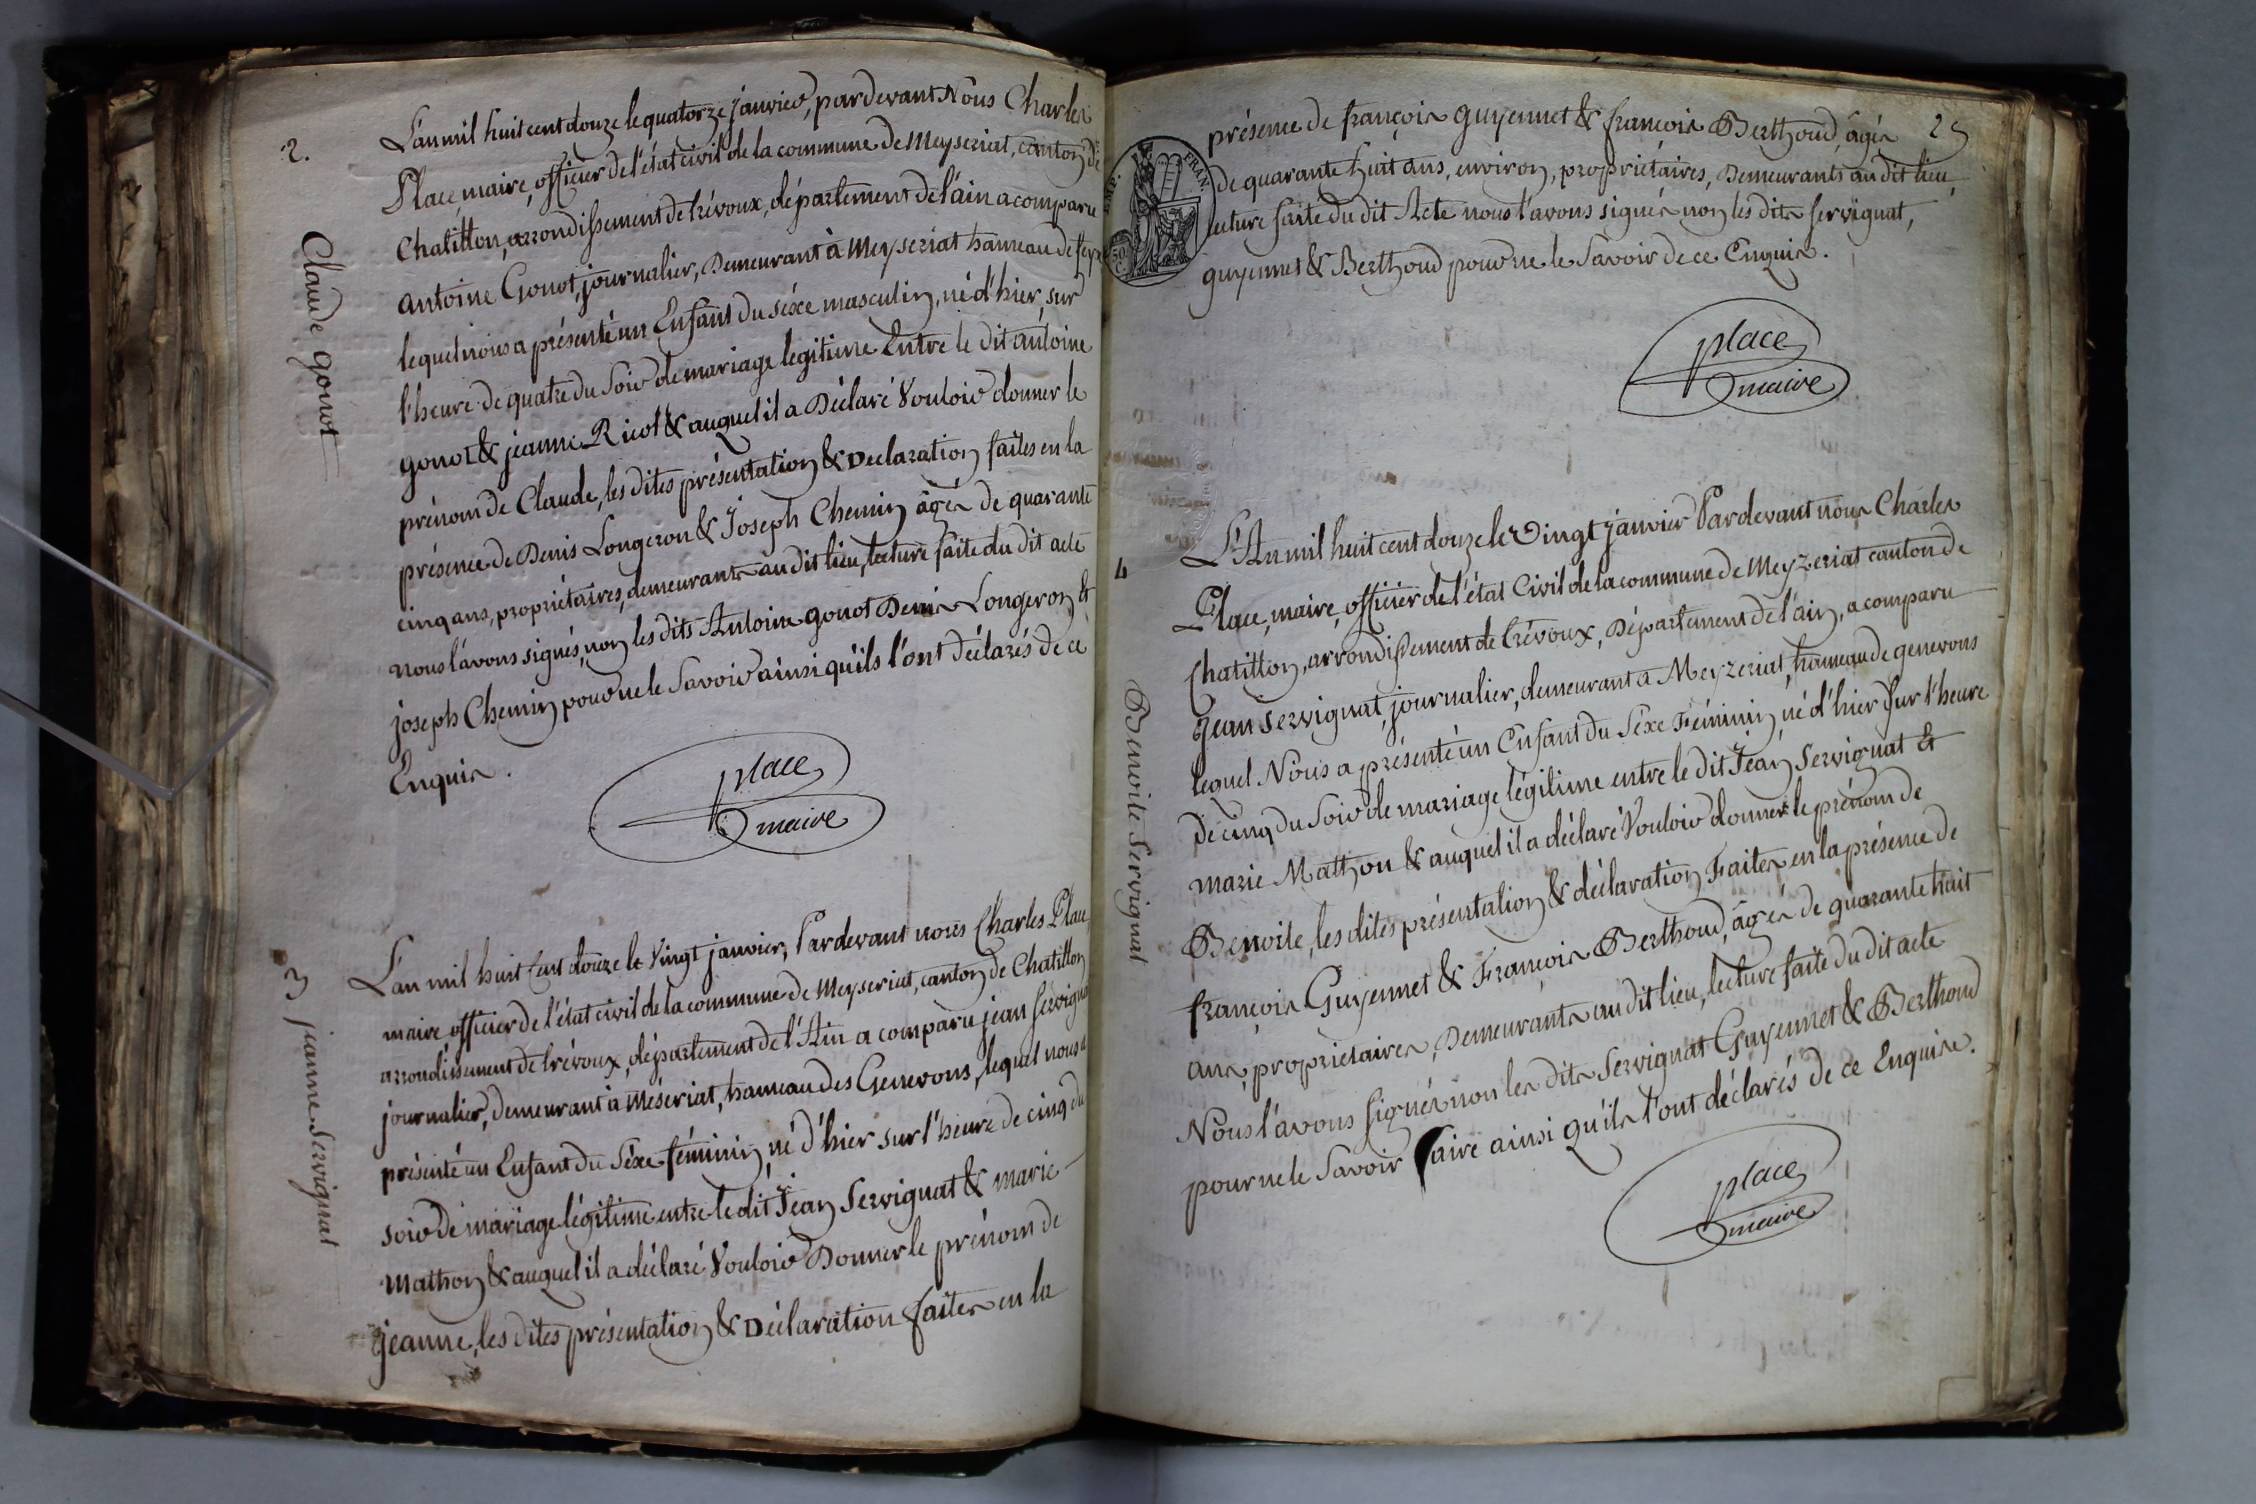 2.
Claude gonot
L'an mil huit cent douze le quatorze janvier, pardevant Nous Charles
Place, maire, officier de l'état civil de la commune de Meyseriat, canton de
Chatillon, arrondissement de trévoux, département de l'ain a comparu
antoine Gonot, journalier, Demeurant à Meyseriat hameau de
lequel nous a présenté un Enfant du séxe masculin, né d'hier, sur
l'heure de quatre du Soir de mariage legitime Entre le dit antoine
gonot & jeanne Ricol & auquel il a Déclaré Vouloir donner le
prénom de Claude, les dites présentation & Declaration faites en la
présence de Denis Longeron & Joseph Chemin âgés de quarante
cinq ans, propriétaires, demeurants au dit lieu, lecture faite du dit acte
nous l'avons signés, non les dits Antoine gonot Denis Longeron, &
joseph Chemin pour ne le Savoir ainsi qu'ils l'ont déclarés de ce
Enquis.
place
maire
3
jeanne Servignat
L'an mil huit Cent douze le Vingt janvier, Pardevant nous Charles Place,
maire, officier de l'état civil de la commune de Meyseriat, canton de Chatillon
arrondissement de trévoux, département de l'Ain a comparu jean Servignat
journalier, Demeurant à Méseriat, hameau des Genevons, lequel nous a
présenté un Enfant du Séxe féminin, né d'hier sur l'heure de cinq du
soir de mariage légitime entre le dit Jean Servignat & marie
Mathon & auquel il a déclaré Vouloir Donner le prénom de
jeanne, les dites présentation & Déclaration faites en la
25
présence de françois guyennet & françois Berthoud, âgés
de quarante huit ans, environ, propriétaires, Demeurants au dit lieu,
lecture faite du dit Acte nous l'avons signés non les dits Servignat,
guyennet & Berthoud pour ne le Savoir de ce Enquis.
EMP. FRAN.
50
C.
place
maire
4
Benoite Servignat
L'An mil huit cent douze le Vingt janvier Pardevant nous Charles
Place, maire, officier de l'état Civil de la commune de Meyzeriat canton de
Chatillon, arrondissement de trévoux, Département de l'ain, a comparu
jean Servignat, journalier, demeurant a Meyzeriat, hameau de genevons
lequel Nous a présenté un Enfant du Séxe Féminin, né d'hier Sur l'heure
de cinq du Soir de mariage légitime entre le dit Jean Servignat &
marie Mathon & auquel il a déclaré Vouloir donner le prénom de
Benoite, les dites présentation & déclaration Faites en la présence de
françois Guyennet & François Berthoud, âgés de quarante huit
ans, propriétaires, Demeurants au dit lieu, lecture faite du dit acte
Nous l'avons signés non les dits Servignat Guyennet & Berthoud
pour ne le Savoir faire ainsi qu'ils l'ont déclarés de ce Enquis.
place
maire